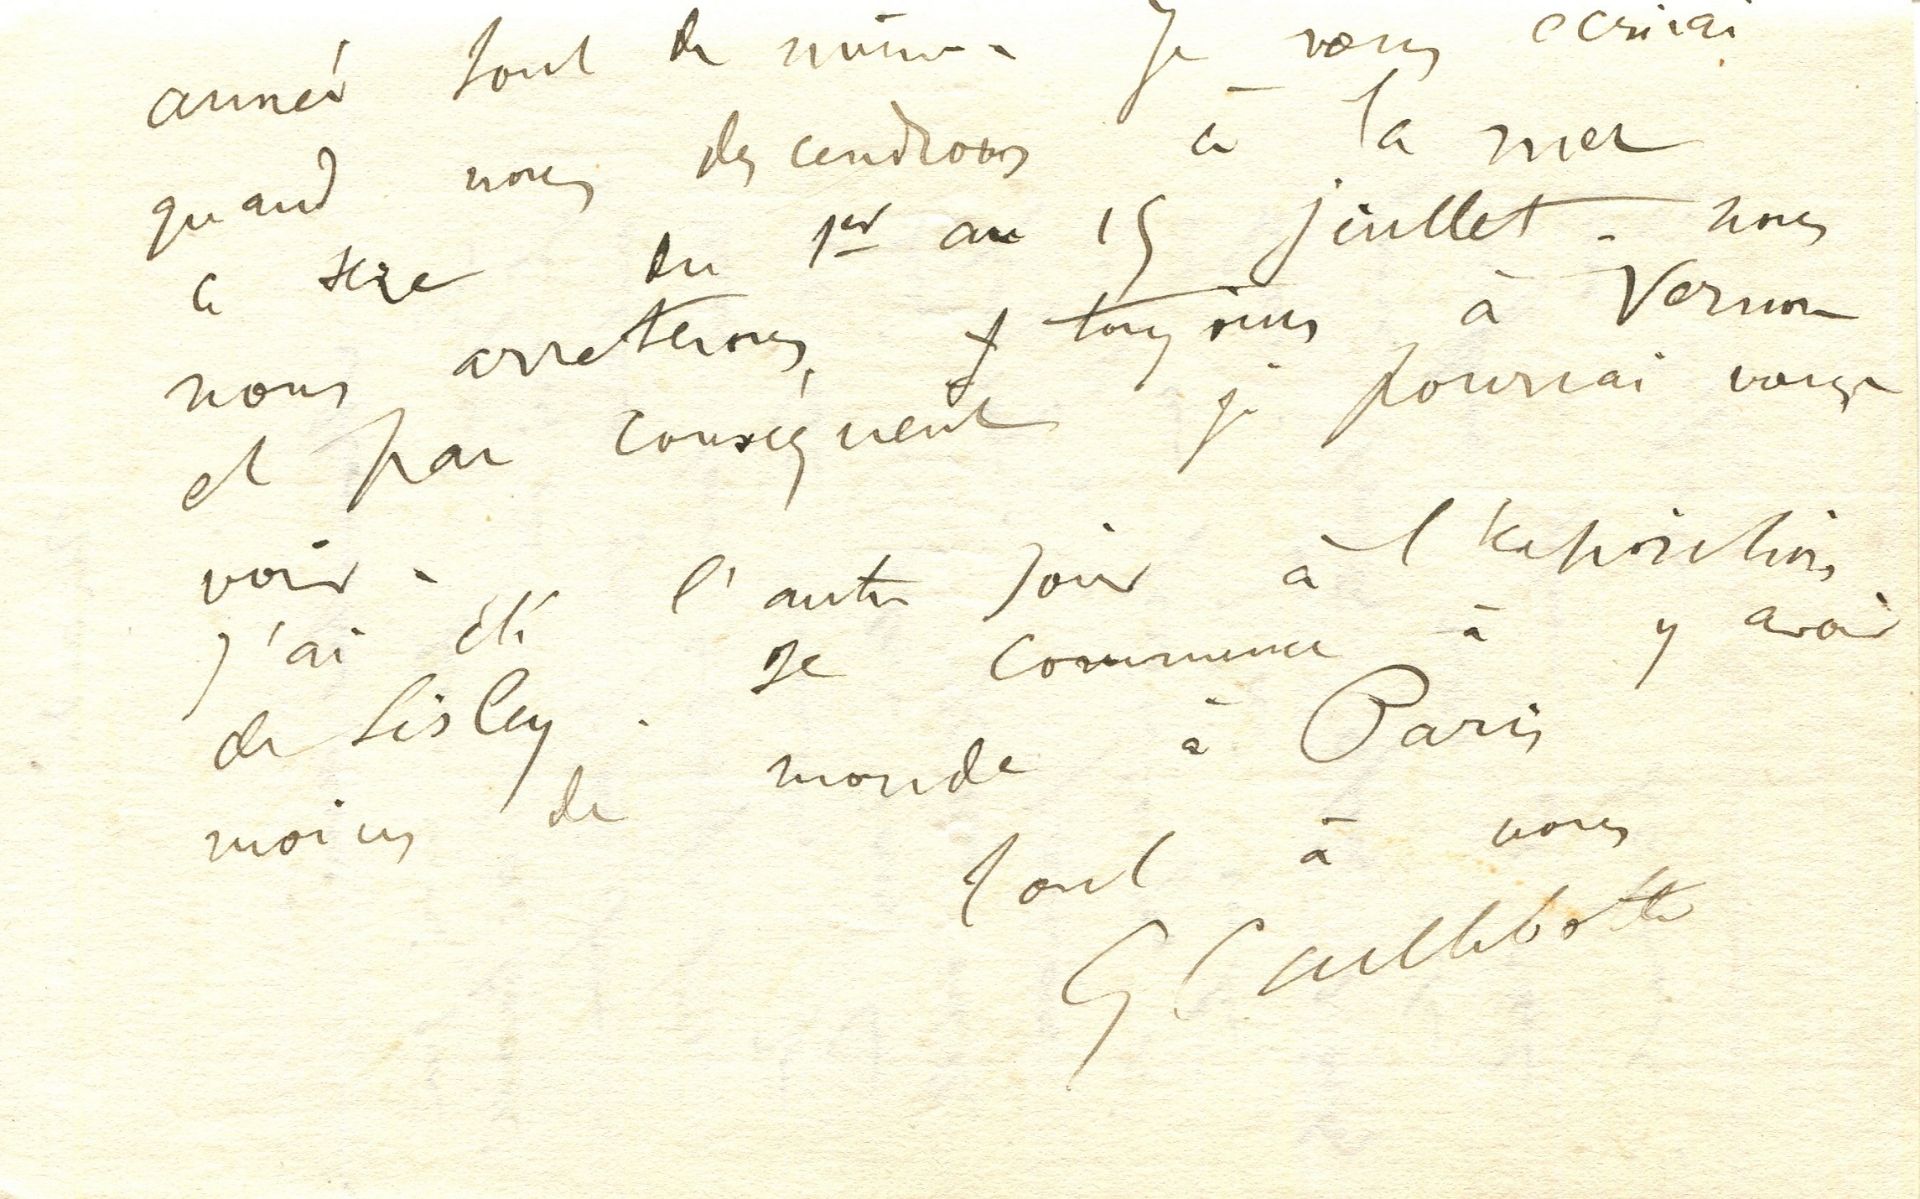 année tout de même. Je vous écrirai
quand nous descendrons à la mer
à du 1er au 15 juillet. nous
nous arreterons toujours à Vernon
et par conséquent je pourrai vous
voir.
J'ai été l'autre jour à l'Exposition
de Sisley. Je commence à y avoir
moins de monde à Paris
tout à vous
G Caillebotte